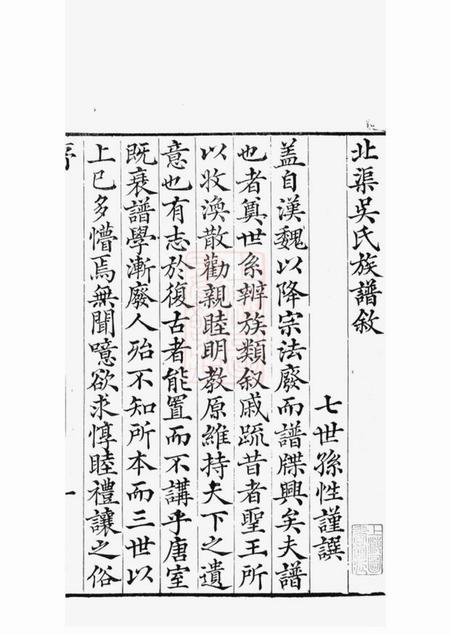 北渠吳氏族譜敘
七世孫性謹譔
盖自漢魏以降宗法廢而譜牒興矣夫譜
也者奠世系辨族類叙戚疏昔者聖王所
以收渙散勸親睦明教原維持天下之遺
意也有志於復古者能置而不講乎唐室
既衰譜學漸廢人殆不知所本而三世以
上已多懵焉無聞噫欲求惇睦禮讓之俗
序
一